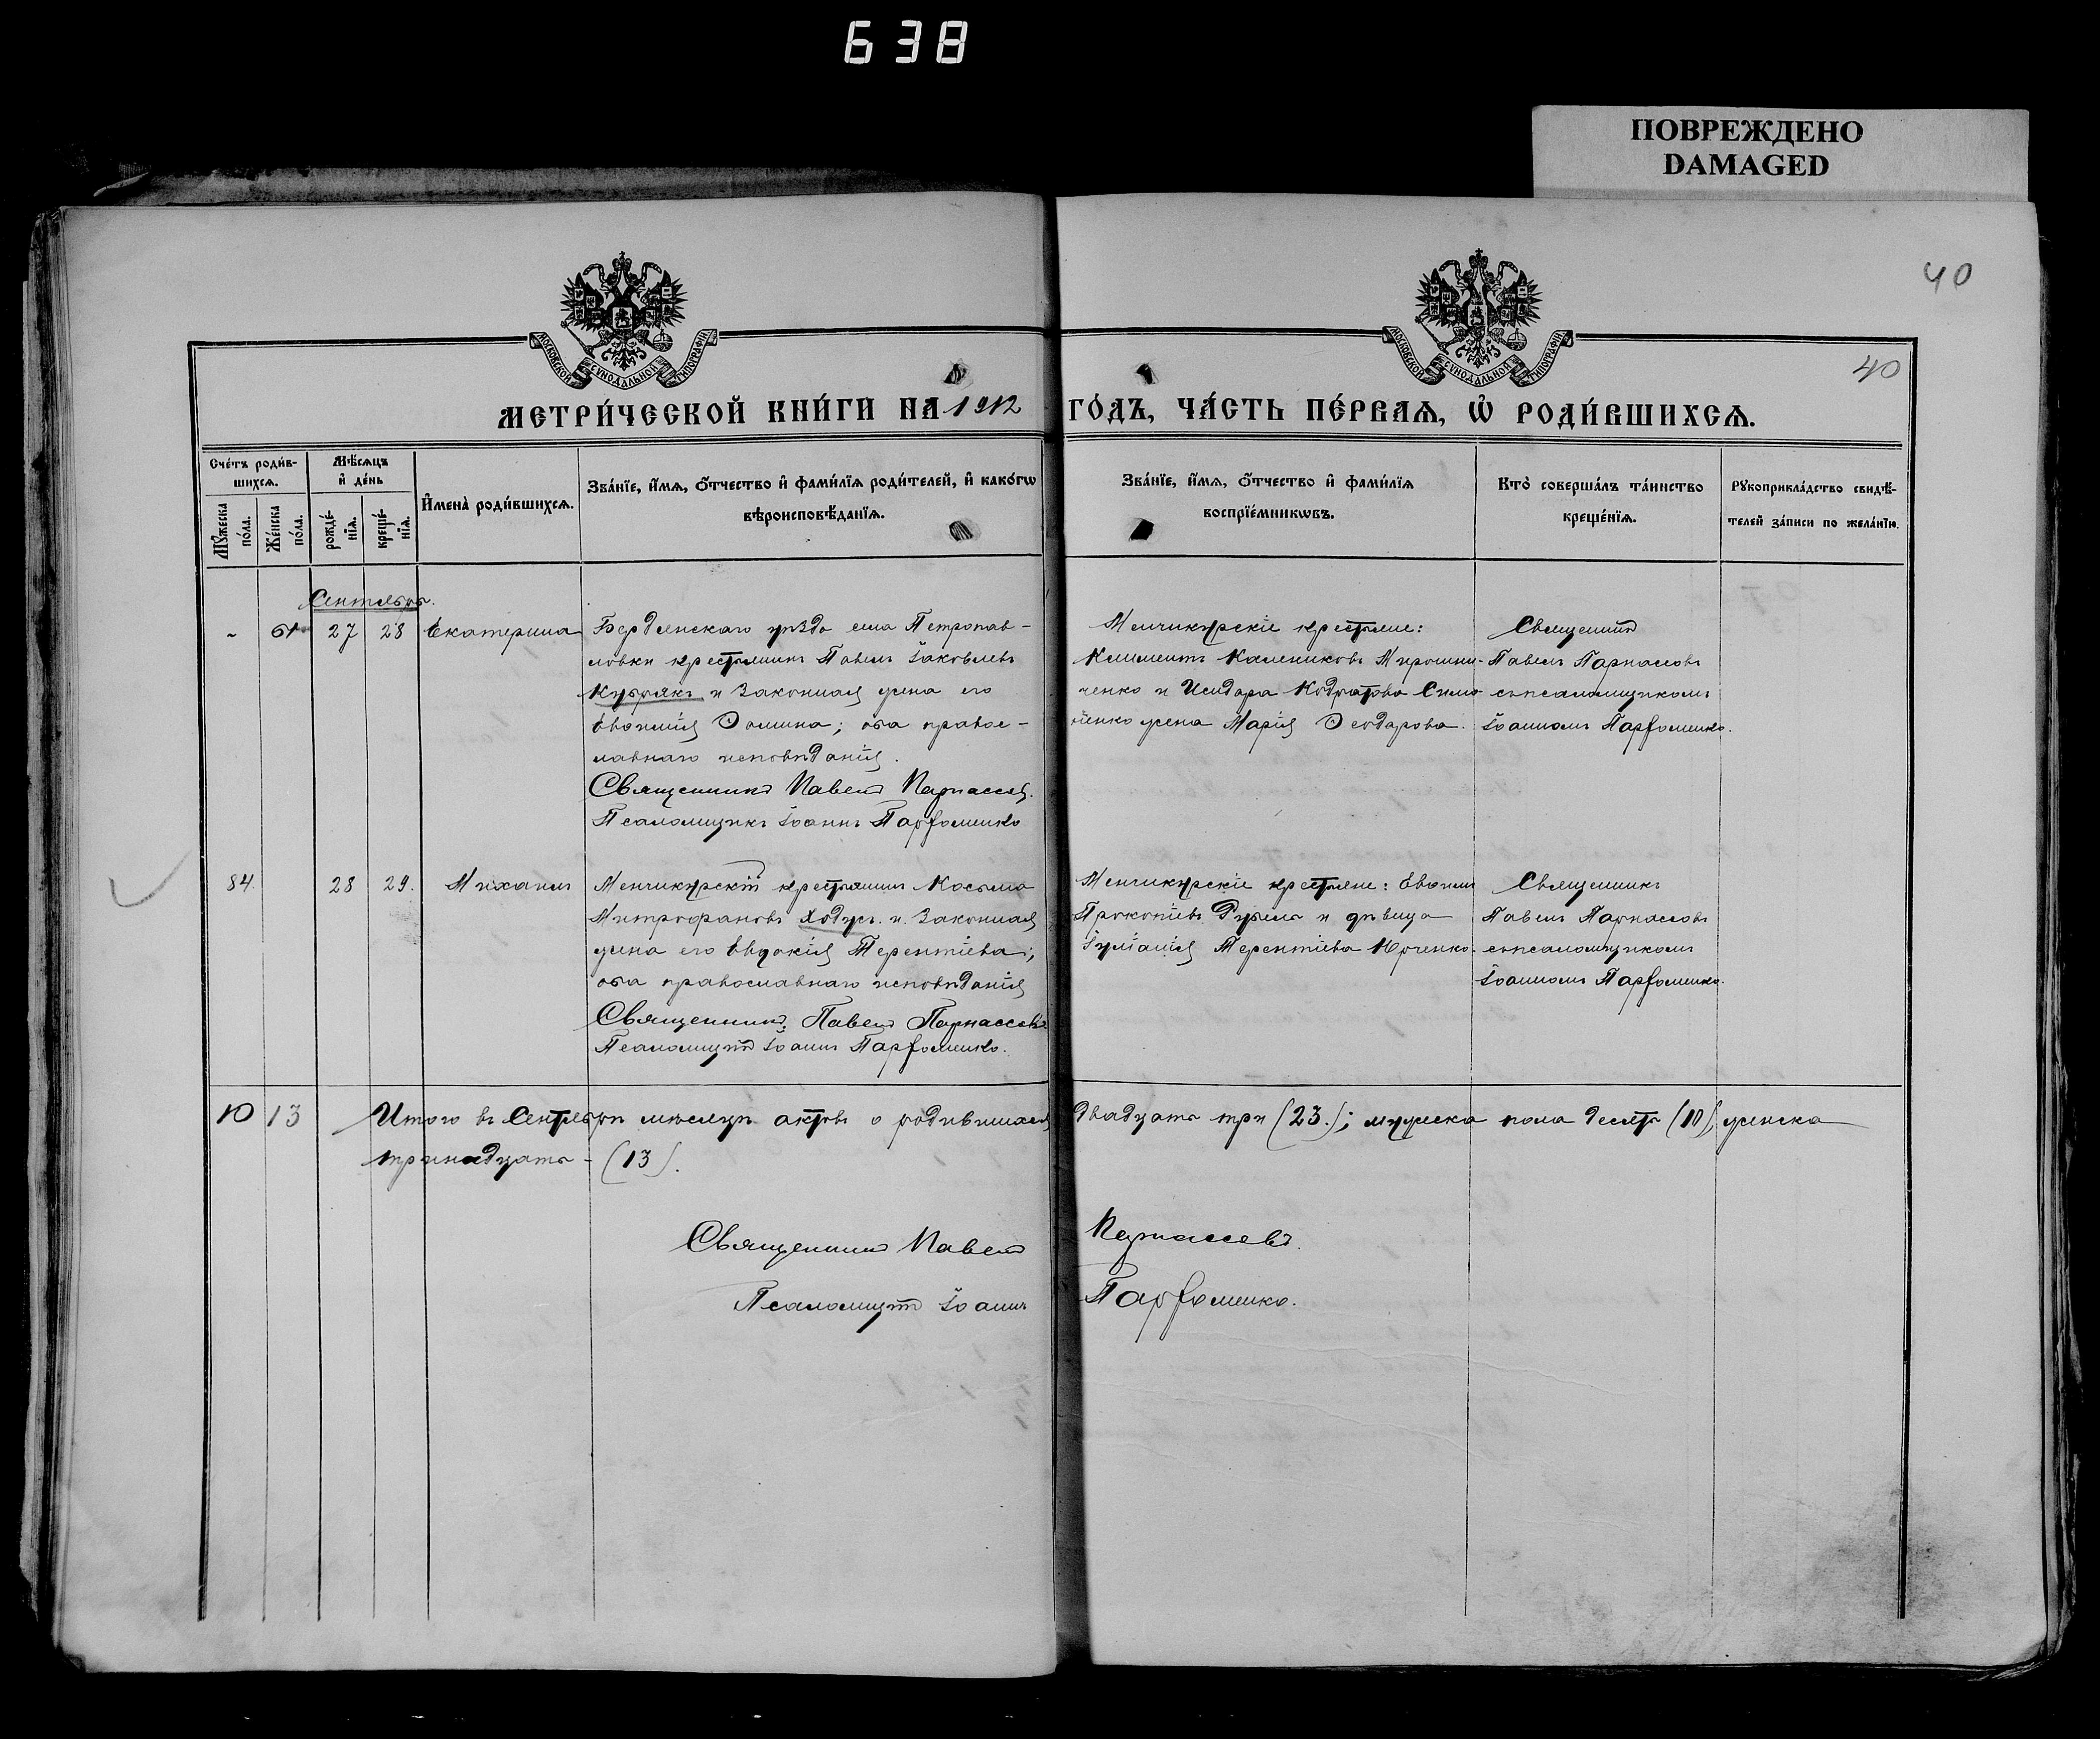 638
ПОВРЕЖДЕНО
DAMAGED
40
40
МОСКОВСКОЙ СѴНОДАЛЬНОЙ ТИПОГРАФІИ
МОСКОВСКОЙ СѴНОДАЛЬНОЙ ТИПОГРАФІИ
МЕТРИ́ЧЕСКОЙ КНИ́ГИ НА 1912 ГО́ДЪ, ЧА́СТЬ ПЕ́РВАѦ, Ѡ҆ РОДИ́ВШИХСѦ.
Сче́тъ роди́в-
шихсѧ.
Мѣ́сѧцъ
и҆ де́нь
Мꙋ́жеска
по́ла.
Же́нска
по́ла.
рожде́-
нїѧ.
креще́-
нїѧ.
И҆мена̀ роди́вшихсѧ.
Зва́нїе, и҆́мѧ, ѻ҆́тчество и҆ фами́лїѧ роди́телей, и҆ како́гѡ
вѣроисповѣ́данїѧ.
Зва́нїе, и҆́мѧ, ѻ҆́тчество и҆ фами́лїѧ
воспрїе́мникѡвъ.
Кто̀ соверша́лъ та́инство
креще́нїѧ.
Рꙋкоприкла́дство свидѣ́-
телей за́писи по жела́нїю.
Сентябрь.
27 28 Екатерина
Бердянскаго уѣзда села Петропав-
ловки крестьянинъ Павелъ Іаковлевъ
и законная жена его
Евфимія Ѳомина; оба правос-
лавнаго исповѣданія.
Священникъ Павелъ Парнассовъ.
Псаломщикъ Іоаннъ Парфоменко
Менчикурскіе крестьяне:
Климентъ Калениковъ Мирошни-
ченко и Исидора Кодратова Симо-
ненко жена Марія Ѳеодорова.
Священникъ
Павелъ Парнассовъ
съ псаломщикомъ
Іоанномъ Парфоменко.
84. 28 29. Михаилъ
Менчикурскій крестьянинъ Косьма
Митрофановъ Ходусъ и законная
жена его Евдокія Терентіева;
оба православнаго исповѣданія
Священникъ Павелъ Парнассовъ
Псаломщикъ Іоаннъ Парфоменко.
Менчикурскіе крестьяне: Евфимъ
Прокопіевъ и дѣвица
Іуліанія Терентіева Юрченко.
Священникъ
Павелъ Парнассовъ
съ псаломщикомъ
Іоанномъ Парфоменко.
10 13 Итого въ Сентябрѣ мѣсяцѣ актовъ о родившихся двадцать три (23.); мужеска пола десять (10), женска
тринадцать - (13).
Священникъ Павелъ Парнассовъ.
Псаломщикъ Іоаннъ Парфоменко.